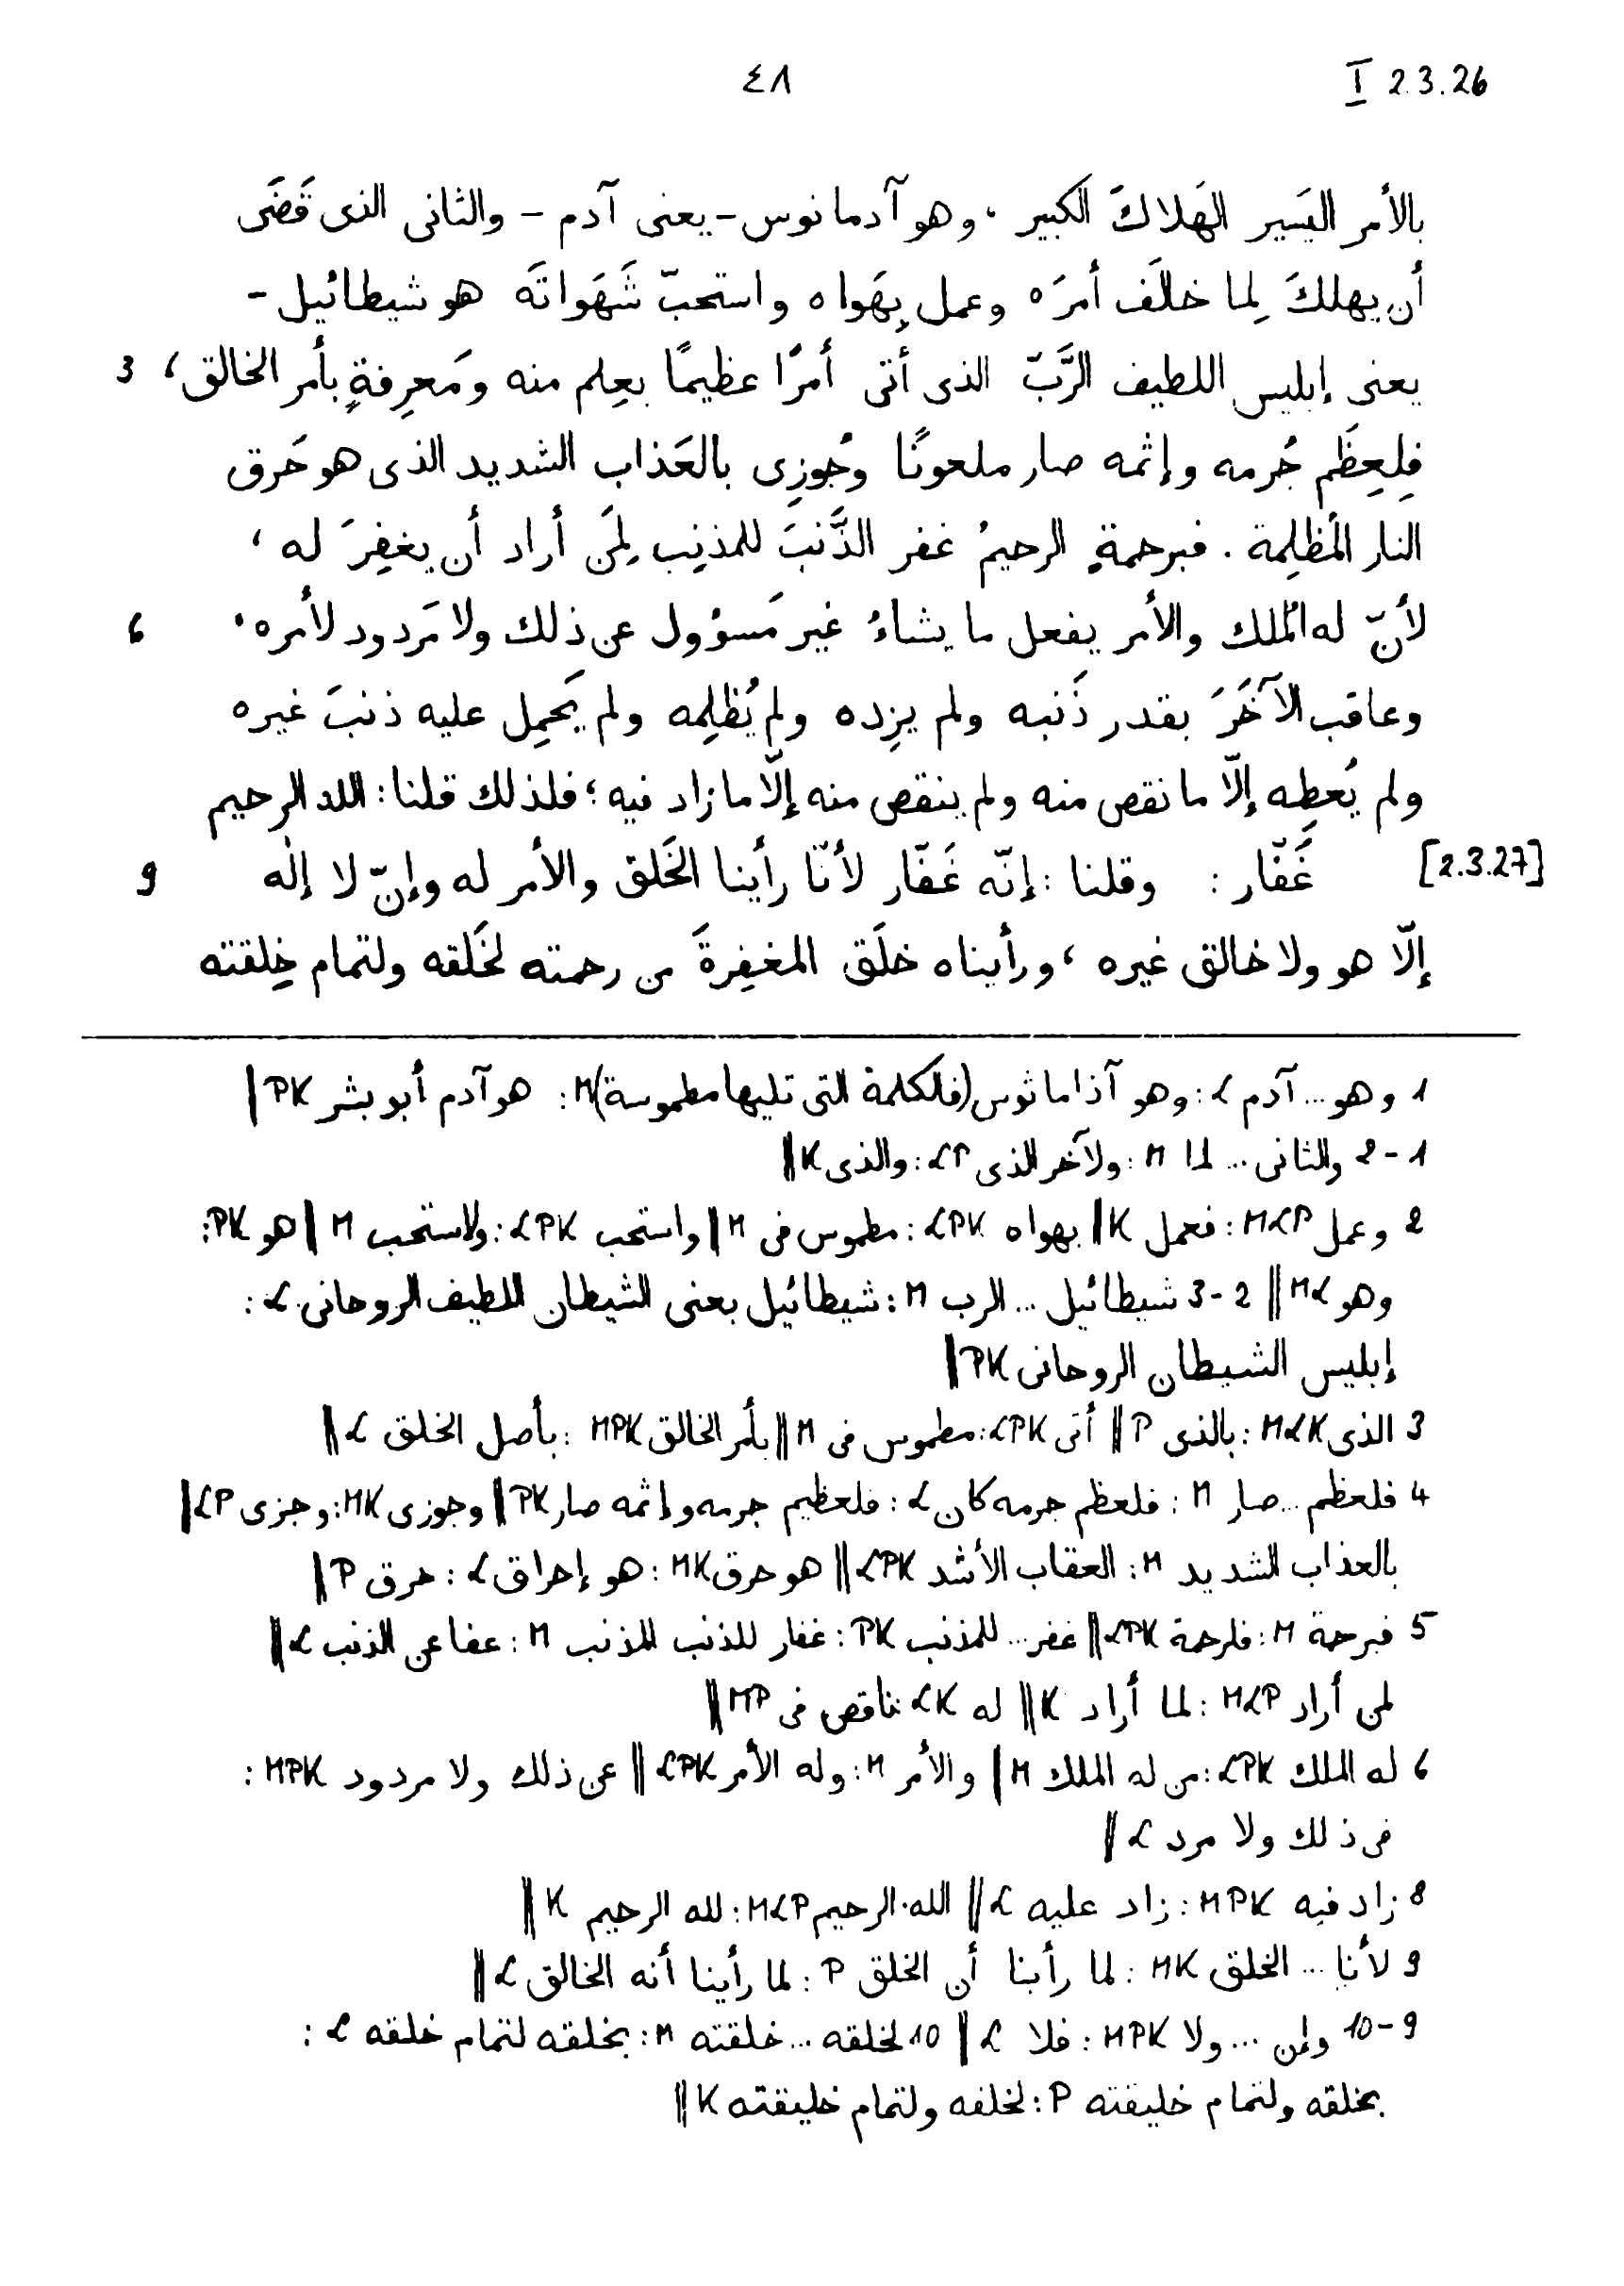 ٤٨
I 2.3.26
بالأمر اليَسير الهَلاكَ الكبير، وهو آدمانوس - يعنى آدم - والثانى الذى قَضَى
أن يهلكَ لِما خالَف أمرَه وعمل بِهَواه واستحبّ شَهَواتَه هو شيطائيل -
يعنى إبليس اللطيف الرَّبّ الذى أتى أمرًا عظيمًا بعِلم منه ومَعرِفةٍ بأمر الخالق، 3
فلِعِظَم جُرمه وإثمه صار ملعونًا وجُوزِى بالعَذاب الشديد الذى هو حَرق
النار المُظلِمة. فبرحمةِ الرحيمُ غفر الذَّنبَ للمذنِب لِمَن أراد أن يغفِرَ له،
لأنّ له المُلك والأمر يفعل ما يشاءُ غير مَسؤول عن ذلك ولا مَردود لأمره، 6
وعاقب الآخَرَ بقدر ذَنبه ولم يزِده ولم يُظلِمه ولم يَحمِل عليه ذنبَ غيره
ولم يُعطِه إلّا ما نقص منه ولم ينقص منه إلّا ما زاد فيه؛ فلذلك قلنا: الله الرحيم
[2.3.27] غَفّار: وقلنا: إنّه غَفّار لأنّا رأينا الخَلق والأمر له وإنّ لا إلٰه 9
إلّا هو ولا خالق غيره، ورأيناه خلَق المغفِرةَ من رحمته لخَلقه ولتمام خِلقته
1 وهو... آدم L: وهو آذاماثوس (فلكلمة التى تليها مطموسة) M: هو آدم أبو بشر PK |
1-2 والثانى... لما M: ولآخر الذى LP: والذى K ||
2 وعمل MLP: فعمل K || بهواه LPK: مطموس فى M || واستحب LPK: ولاستحب M | هو PK:
وهو ML || 2-3 شيطائيل... الرب M: شيطائيل يعنى الشيطان اللطيف الروحانى L:
إبليس الشيطان الروحانى PK |
3 الذى MLK: بالذى P || أتى LPK: مطموس فى M || بأمر الخالق MPK: بأصل الخلق L ||
4 فلعظم... صار M: فلعظم جرمه كان L: فلعظيم جرمه وإثمه صار PK || وجوزى MK: وجزى LP ||
بالعذاب الشديد M: العقاب الأشد LPK || هو حرق MK: هو إحراق L: حرق P ||
5 فبرحمة M: فلرحمة LPK || غفر... للمذنب PK: غفار للذنب للمذنب M: عفا عن الذنب L ||
لمن أراد MLP: لما أراد K || له LK ناقص فى MP ||
6 له الملك LPK: من له الملك M | والأمر M: وله الأمر LPK || عن ذلك ولا مردود MPK:
فى ذلك ولا مرد L ||
8 زاد فيه MPK: زاد عليه L || الله الرحيم MLP: لله الرحيم K ||
9 لأنا... الخلق MK: لما رأينا أن الخلق P: لما رأينا أنه الخالق L ||
9-10 وإن... ولا MPK: فلا L || 10 لخلقه... خلقته M: بخلقه لتمام خلقه L:
بخلقه ولتمام خليقته P: لخلقه ولتمام خليقته K ||